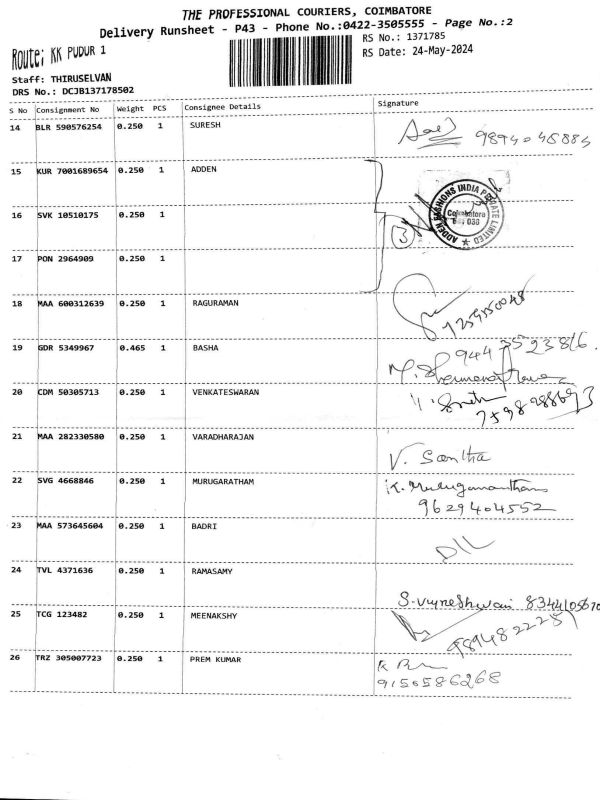 THE PROFESSIONAL COURIERS, COIMBATORE
Delivery Runsheet - P43 - Phone No.:0422-3505555 - Page No.:2
Route: KK PUDUR 1
RS No.: 1371785
RS Date: 24-May-2024
Staff: THIRUSELVAN
DRS No.: DCJB137178502
S No Consignment No Weight PCS Consignee Details Signature
14 BLR 590576254 0.250 1 SURESH
15 KUR 7001689654 0.250 1 ADDEN
ADDEN FASHIONS INDIA PRIVATE LIMITED
Coimbatore
16 SVK 10510175 0.250 1
3
17 PON 2964909 0.250 1
18 MAA 600312639 0.250 1 RAGURAMAN
19 GDR 5349967 0.465 1 BASHA
20 CDM 50305713 0.250 1 VENKATESWARAN
21 MAA 282330580 0.250 1 VARADHARAJAN
V. Santha
22 SVG 4668846 0.250 1 MURUGARATHAM
K. Muruganantham
9629404552
23 MAA 573645604 0.250 1 BADRI
24 TVL 4371636 0.250 1 RAMASAMY
25 TCG 123482 0.250 1 MEENAKSHY
26 TRZ 305007723 0.250 1 PREM KUMAR
9150586268